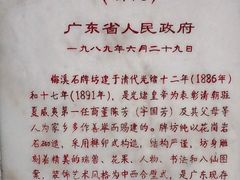 广东省人民政府
一九八九年六月二十九日
梅溪石牌坊建于清代光绪十二年(1886年)
和十七年(1891年)，是光绪皇帝为表彰清朝驻
夏威夷第一任商董陈芳(字国芬)及其父母等
人为家乡多作善举而赐建的。牌坊纯以花岗岩
石砌造，采用榫卯式构造，结构严谨，坊身雕
刻着精美的瑞兽、花果、人物、书法和八仙图
案，装饰艺术风格为中西合璧，是广东现存